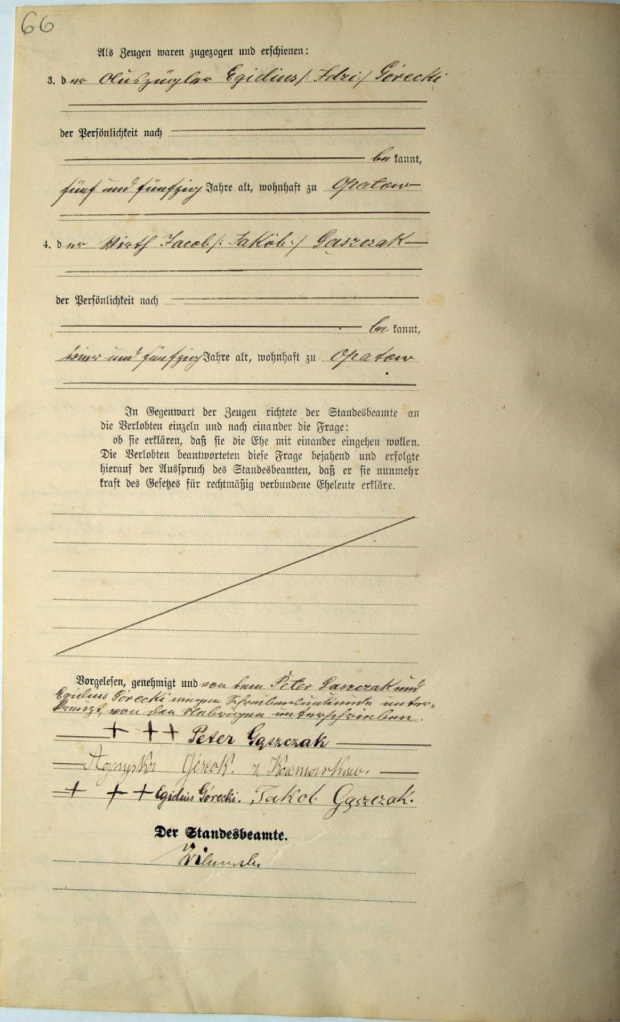 66
Als Zeugen waren zugezogen und erschienen:
3. der Auszügler Egidius /: Idzi :/ Górecki
der Persönlichkeit nach
bekannt,
fünf und fünfzig Jahre alt, wohnhaft zu Opatow
4. der Wirth Jacob /: Jakób :/ Gąszczak
der Persönlichkeit nach
bekannt,
vier und fünfzig Jahre alt, wohnhaft zu Opatow
In Gegenwart der Zeugen richtete der Standesbeamte an
die Verlobten einzeln und nach einander die Frage:
ob sie erklären, daß sie die Ehe mit einander eingehen wollen.
Die Verlobten beantworteten diese Frage bejahend und erfolgte
hierauf der Ausspruch des Standesbeamten, daß er sie nunmehr
kraft des Gesetzes für rechtmäßig verbundene Eheleute erkläre.
Vorgelesen, genehmigt und von dem Peter Gąszczak und
Egidius Górecki wegen Schreibensunkunde unter-
kreuzt, von den Uebrigen unterschrieben.
+ ++ Peter Gąszczak
z
+ ++ Egidius Górecki. Jakob Gąszczak.
Der Standesbeamte.